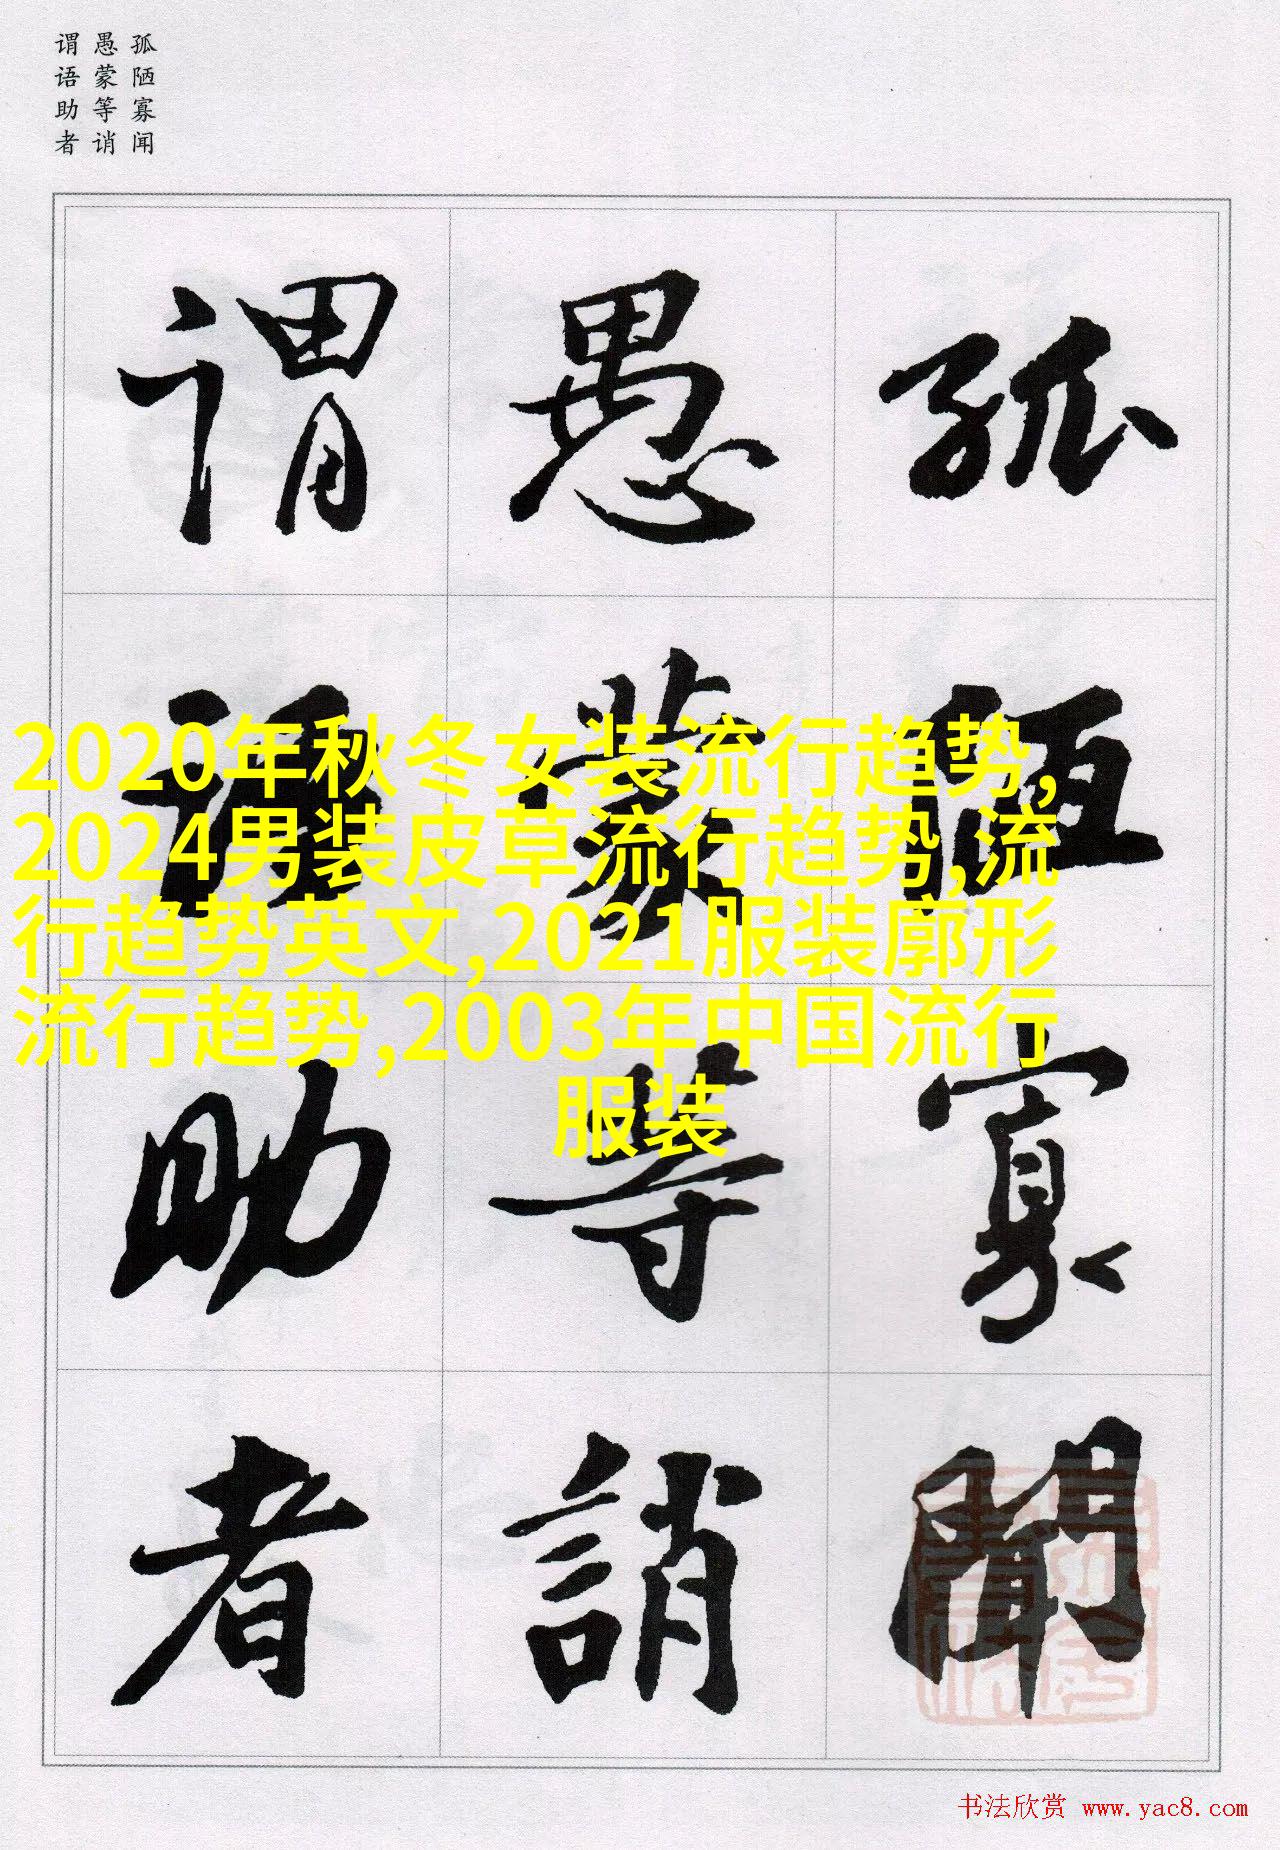 孤陋寡闻
愚蒙等诮
谓语助者
孤陋寡聞
愚蒙等誚
谓语助者
2020年秋冬女装流行趋势,
2024男装皮草流行趋势,流
行趋势英文,2021服装廓形
流行趋势,2003年中国流行
服装
书法欣赏 www.yac8.com